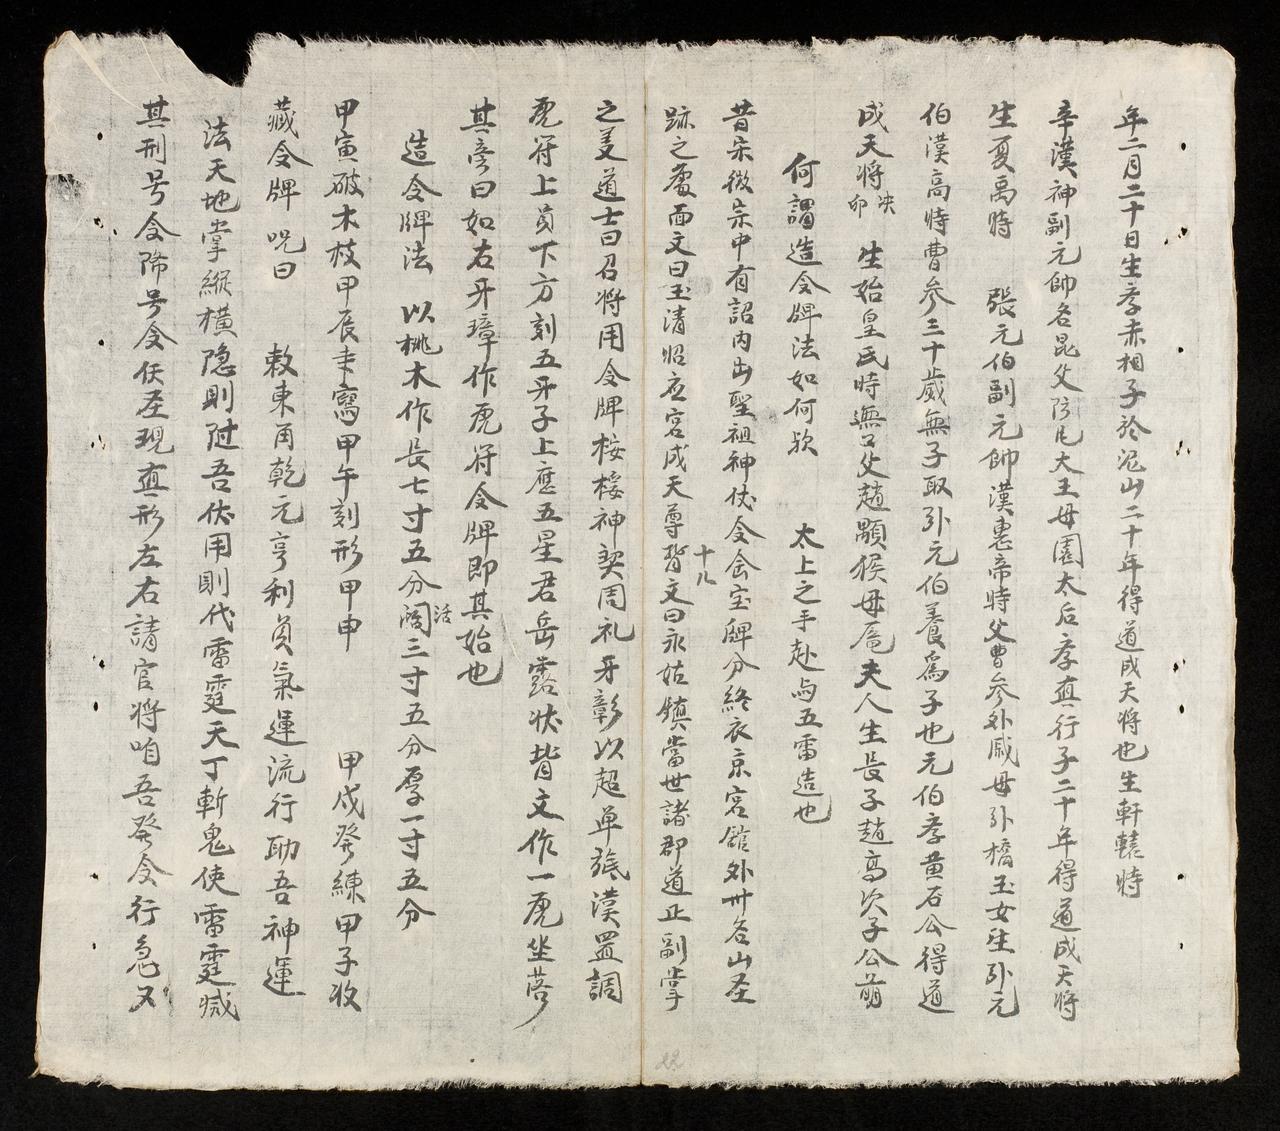 年二月二十日生孝赤相子於泥山二十年得道成天将也生軒轅時
辛漢神副元帥名昆父防凡大王母園太后孝真行子二十年得道成天将
生夏禹時 張元伯副元帥漢惠帝時父曹参外戚母卦橋玉女生卦元
伯漢高時曹参三十歲無子取卦元伯養爲子也元伯孝黄石公得道
成天将决卯 生始皇氏時無父趙顯猴母尾夫人生長子趙高次子公萌
何謂造令牌法如何欤 太上之手赴与五雷造也
昔宋徽宗中有詔内出聖祖神仗令会宝牌分終衣京宮舘外卅名山圣
跡之處面文曰玉清昭应宮成天尊背文曰永姑鎮當世諸郡道正副掌
十八
之美道士曰召将用令牌桉桵神契周礼牙彰以超单旅漢置調
虎符上員下方刻五牙子上應五星君岳露状背文作一虎坐落
其旁曰如右牙璋作虎符令牌即其始也
造令牌法 以桃木作長七寸五分濶活三寸五分厚一寸五分
甲寅破木枝甲辰書寫甲午刻形甲申 甲戌発練甲子收
藏令牌咒曰 敕東角乾元亨利負氣運流行助吾神運
法天地掌縱横隐則跗吾伏用則代雷霆天丁斬鬼使雷霆减
其刑号令降号令伏圣現真形左右請官将咱吾発令行急又
22